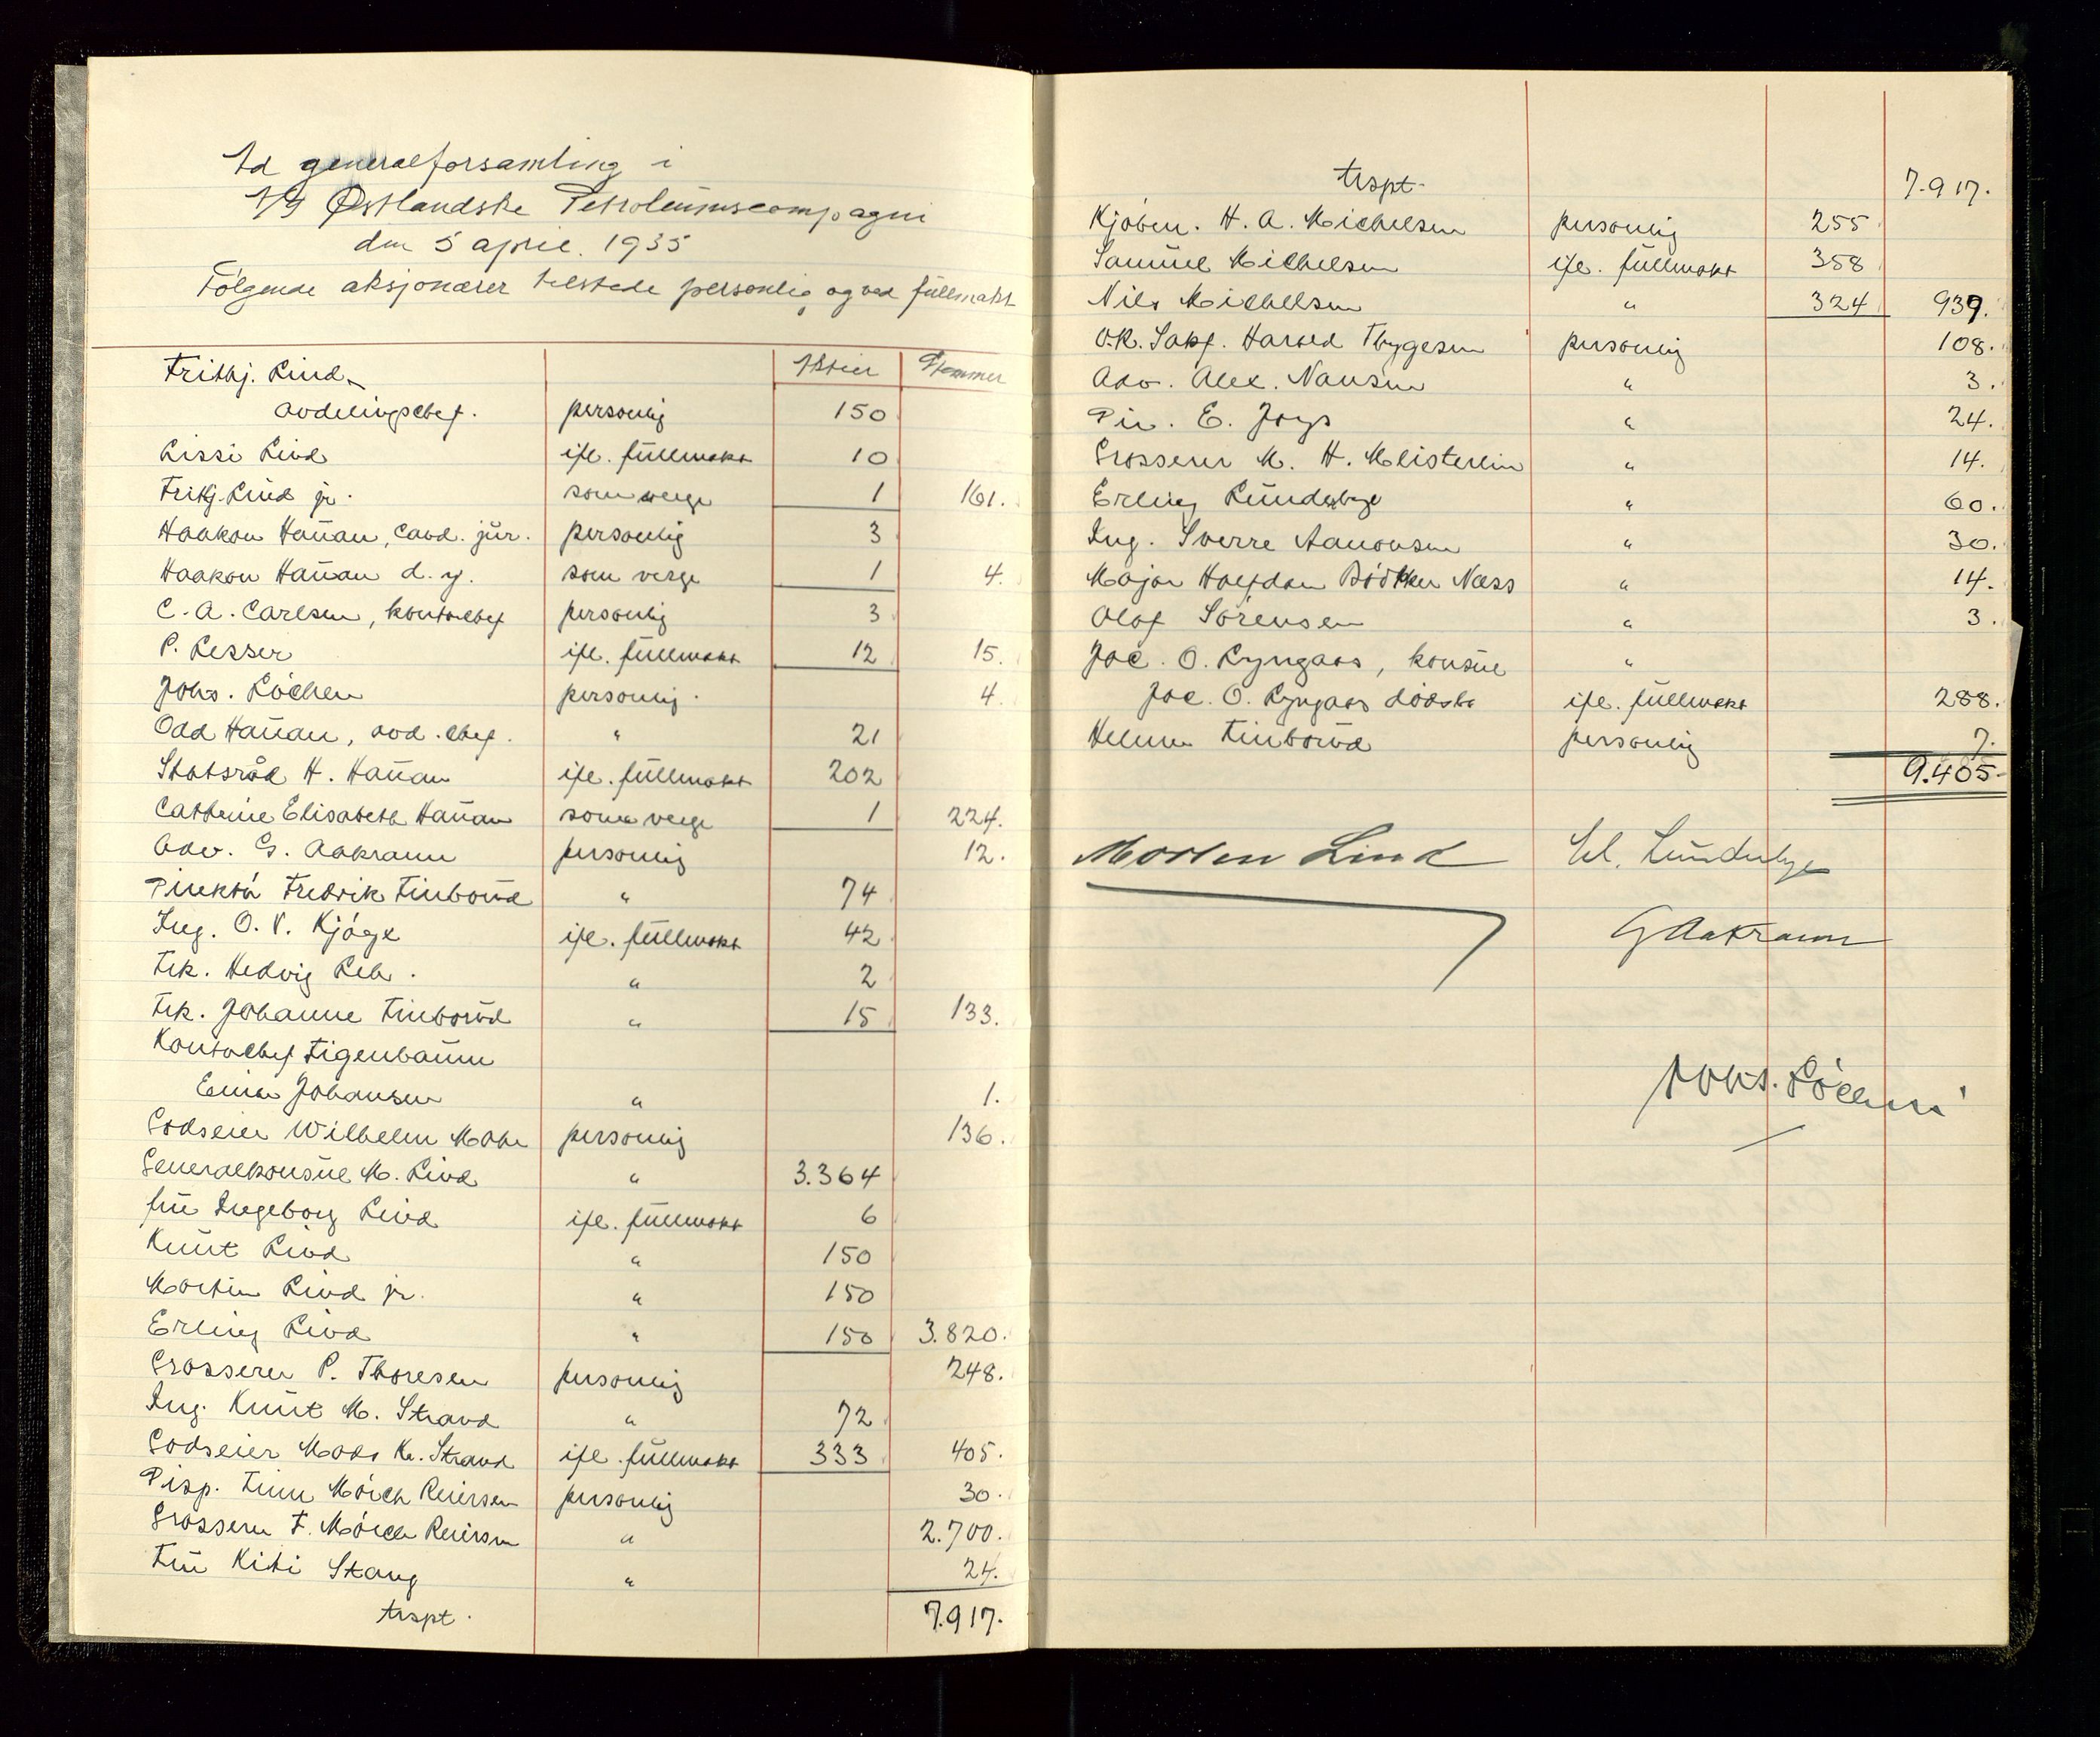 Ad generalforsamling i
A/S Østlandske Petroleumscompagni
den 5 april. 1935
Følgende aksjonærer tilstede personlig og ved fullmakt
Aktier Stemmer
Frithj. Lind,
avdelingschef. personlig 150
Lissi Lind ifl. fullmakt 10
Frithj. Lind jr. som verge 1 161.
Haakon Hauan, cand. jur. personlig 3
Haakon Hauan d. y. som verge 1 4.
C. A. Carlsen, kontorchef personlig 3
P. Lesser ifl. fullmakt 12 15.
Johs. Løchen personlig. 4.
Odd Hauan, avd. chef. " 21
Statsråd H. Hauan ifl. fullmakt 202
Cathrine Elisabeth Hauan som verge 1 224.
Adv. G. Aakrann personlig 12.
Direktør Fredrik Finborud " 74
Ing. O. V. Kjøge ifl. fullmakt 42
Frk. Hedvig " 2
Frk. Johanne Finborud " 15 133.
Kontorchef Figenbaum
Johansen " 1.
Godseier Wilhelm Mohr personlig 136.
Generalkonsul M. Lind " 3.364
fru Ingeborg Lind ifl. fullmakt 6
Knut Lind " 150
Morten Lind jr. " 150
Erling Lind " 150 3.820.
Grosserer P. Thoresen personlig 248.
Ing. Knut M. Strand " 72
Godseier Mads Kr. Strand ifl. fullmakt 333 405.
Disp. Finn Mørch Reiersen personlig 30.
Grosserer F. Mørch Reiersen " 2.700.
Fru Kiti Stang " 24.
trspt. 7.917.
trspt. 7.917.
Kjøbm. H. A. Michelsen personlig 255
Samuel Michelsen ifl. fullmakt 358
Nils Michelsen " 324 939.
O.R. Sakf. Harald Thygesen personlig 108.
Adv. Alex. Nansen " 3.
Dir. E. Joys " 24.
Grosserer M. H. Meisterlin " 14.
Erling Lunderbye " 60.
Ing. Sverre Aanonsen " 30.
Major Halfdan Bødtker Næss " 14.
Olaf Sørensen " 3.
Jac. O. Lyngaas, konsul "
Jac. O. Lyngaas dødsbo ifl. fullmakt 288.
Helmer Finborud personlig 7.
9.405.
Morten Lind Erl. Lunderbye
G Aakrann
Johs. Løchen